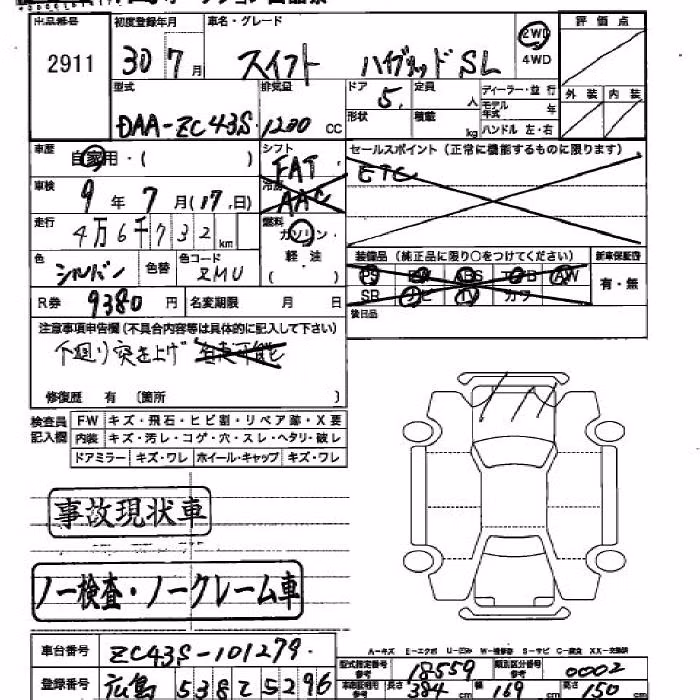 出品番号 初度登録年月 車名・グレード 2WD 評価点
2911 30 7 月 スイフト ハイブリッド SL 4WD
型式 排気量 ドア 定員 ディーラー・並行 外装 内装
DAA-ZC43S 1200 CC 5 人 モデル年式 年
形状 積載 kg ハンドル 左・右
車歴 自家用・( ) シフト FAT セールスポイント(正常に機能するものに限ります)
車検 9 年 7 月(17日) 冷房 AAC ETC
走行 4万6千732 km 燃料 ガソリン・
軽油
( )
色 シルバー 色替 色コード ZMU 装備品(純正品に限り○をつけてください) 新車保証書
PS PW ABS エアB AW 有・無
R券 9380 円 名変期限 月 日 SR ナビ TV カワ
後日品
注意事項申告欄(不具合内容等は具体的に記入して下さい)
下廻り突き上げ 自走可能
修復歴 有 〔箇所 〕
検査員記入欄 FW キズ・飛石・ヒビ割・リペア跡・X要
内装 キズ・汚レ・コゲ・穴・スレ・ヘタリ・破レ
ドアミラー キズ・ワレ ホイール・キャップ キズ・ワレ
事故現状車
ノー検査・ノークレーム車
A-キズ E-エクボ U-凹み W-補修跡 S-サビ C-腐食 XX-交換済
車台番号 ZC43S-101279
型式指定番号参考 18559 類別区分番号参考 0002
登録番号 広島 538 て 5296
車庫証明用参考 長さ 384 cm 幅 169 cm 高さ 150 cm